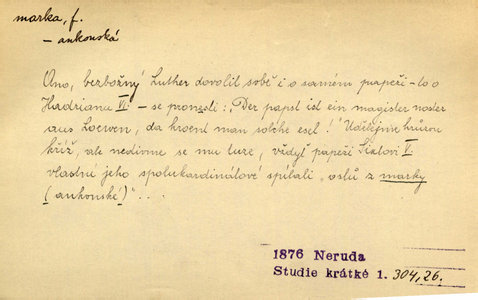 marka, f.
– ankonská
Ano, bezbožný Luther dovolil sobě i o samém papeži – to o
Hadrianu VI – se pronésti: „Der papst ist ein magister noster
aus Loewen, da kroent man solche esel!“ Udělejme hrůzou
kříž, ale nedivme se mu tuze, vždyť papeži Sixtovi V.
vlastní jeho spolukardinálové spílali „oslů z marky
(ankonské)“...
1876 Neruda
Studie krátké 1. 304,26.